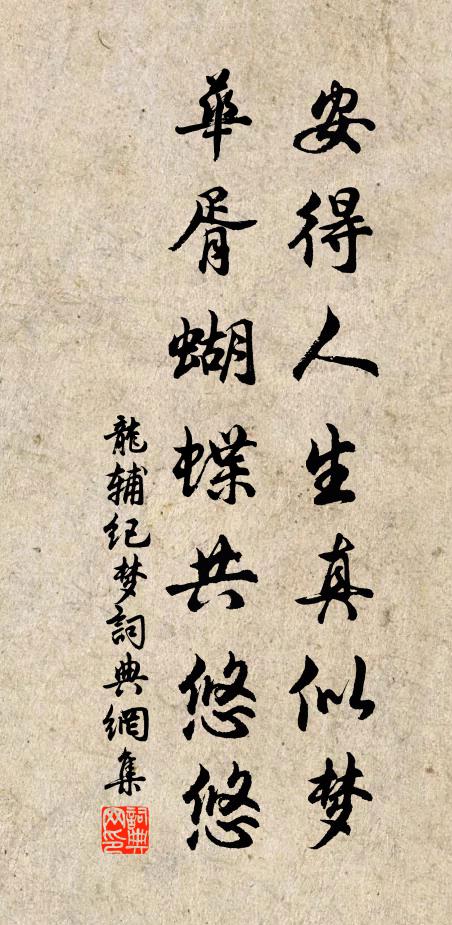 安得人生真似梦
華胥蝴蝶共悠悠
龍辅纪梦詞典網集
詞典网印